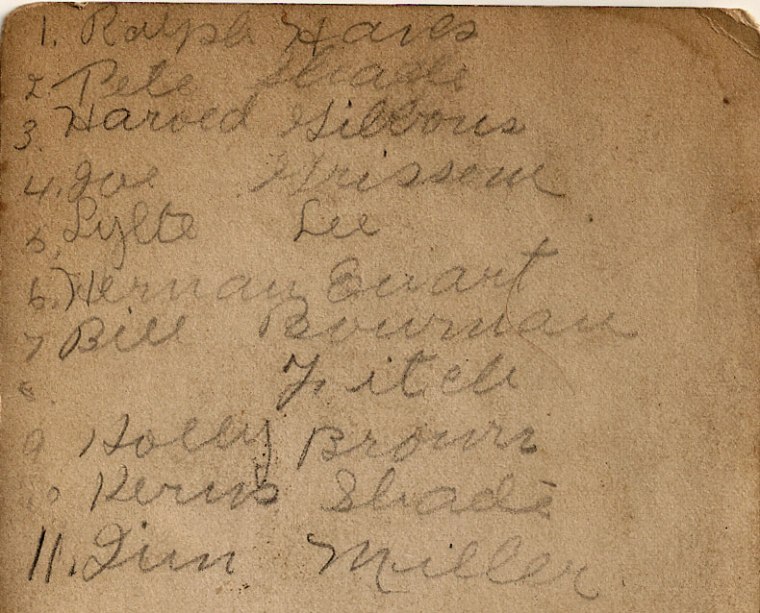 1. Ralph Haves
2 Pete Shade
3. Harold Gibbons
4. Joe Grissom
5. Lee
6. Herman Ewart
7 Bill Bowman
8. Fitch
9 Holly Brown
10 Shade
11. Jim Miller.